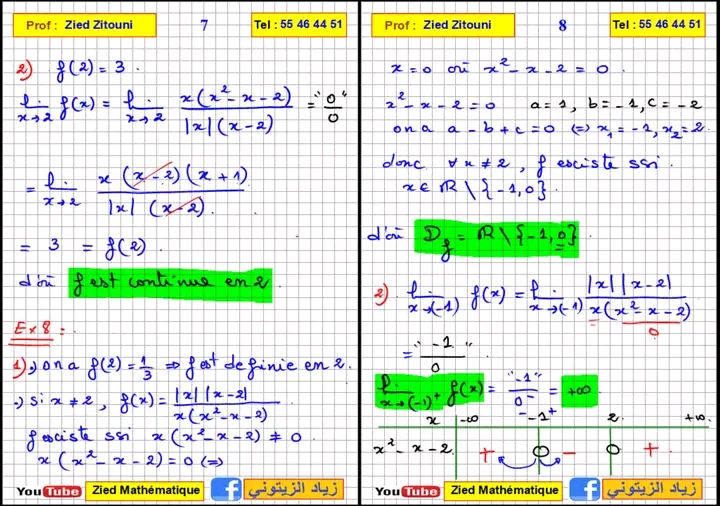 Prof : Zied Zitouni 7 Tel : 55 46 44 51
2) f(2) = 3.
lim x→2 f(x) = lim x→2 x(x² - x - 2) / |x|(x - 2) = "0"/0
= lim x→2 x(x - 2)(x + 1) / |x|(x - 2)
= 3 = f(2)
d'où f est continue en 2
Ex 8 :
1) •) on a f(2) = 1/3 ⇒ f est définie en 2.
•) si x ≠ 2, f(x) = |x||x - 2| / x(x² - x - 2)
f existe ssi x(x² - x - 2) ≠ 0
x(x² - x - 2) = 0 (⇒
YouTube Zied Mathématique f زياد الزيتوني
Prof : Zied Zitouni 8 Tel : 55 46 44 51
x = 0 où x² - x - 2 = 0.
x² - x - 2 = 0 a = 1, b = -1, c = -2
on a a - b + c = 0 (⇒ x₁ = -1, x₂ = 2.
donc ∀ x ≠ 2, f existe ssi.
x ∈ ℝ \ {-1, 0}.
d'où D_f = ℝ \ {-1, 0}
2) lim x→(-1) f(x) = lim x→(-1) |x||x - 2| / x(x² - x - 2)
0
= "-1"/0
lim x→(-1)⁺ f(x) = "-1"/0⁻ = +∞
x -∞ -1⁺ 2 +∞
x² - x - 2 + 0 - 0 +
YouTube Zied Mathématique f زياد الزيتوني